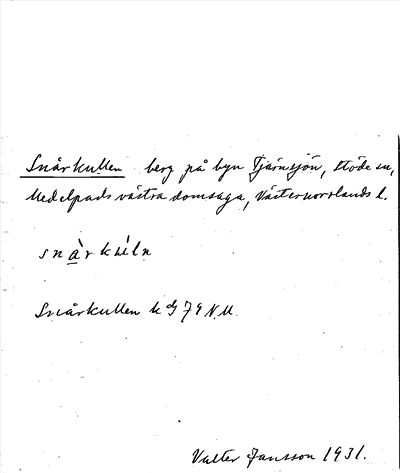 Snårkullen berg på byn Tjärnsjön, Stöde sn,
Medelpads västra domsaga, Västernorrlands l.
snàrkúln
Snårkullen k 79 N.U.
Valter Jansson 1931.